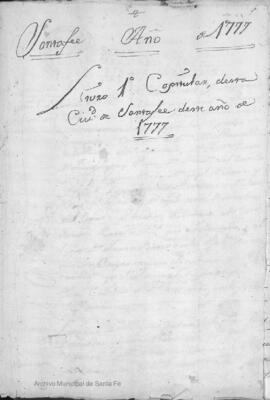 Santafee Año de 1777
Livro 1º Capitular, desta
Ciud. de Santafee deste año de
1777
Archivo Municipal de Santa Fe